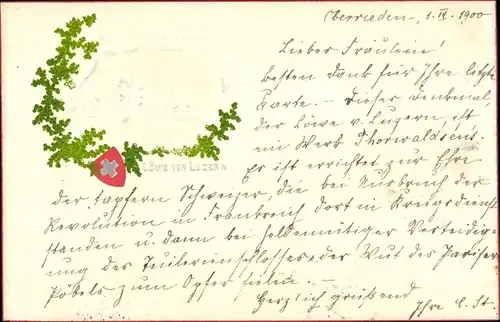 Oberrieden, 1. IV. 1900
Liebes Fräulein!
besten Dank für Ihre letzte
Karte. – Dieses Denkmal,
der Löwe v. Luzern, ist
ein Werk Thorwaldsens.
LÖWE VON LUZERN
Es ist errichtet zur Ehre
der tapfern Schweizer, die bei Ausbruch der
Revolution in Frankreich dort in Kriegsdienst
standen u. dann bei heldenmütiger Verteidig-
ung des Tuilerienschlosses der Wut des Pariser
Pöbels zum Opfer fielen. –
Herzlich grüßend
Ihre E. St.